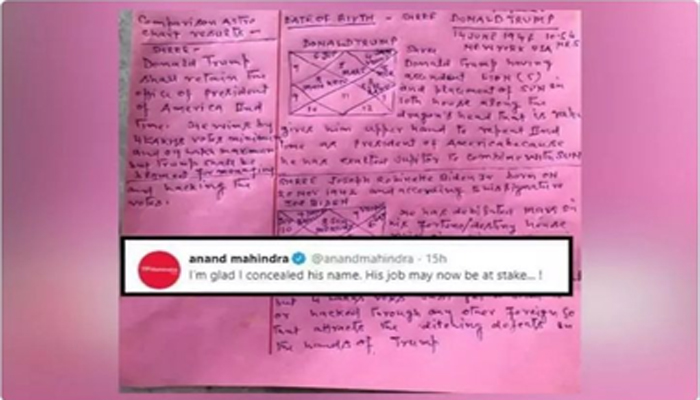 Comparison Astro
chart results -
SHREE -
Donald Trump
shall retain the
office of President
of America IInd
time. She wins by
4 Lakhs votes minimum
and 04 Lakh maximum
but Trump shall be
blamed for managing
and hacking the
votes.
DATE OF BIRTH - SHREE DONALD TRUMP
14 JUNE 1946 10.54
NEWYORK USA HRS
DONALD TRUMP
Shree
Donald Trump having
ascendent LION (5)
and placement of SUN in
10th house along the
dragon's head that is
gives him upper hand to repeat IInd
time as President of America because
he has exalted Jupiter to combine with SUN
SHREE Joseph Robinette Biden Jr born on
20 NOV 1942 and according
JOE BIDEN
He has debilitated mars in
his fortune/destiny house
anand mahindra @anandmahindra · 15h
I'm glad I concealed his name. His job may now be at stake... !
but 4 Lakhs votes
or hacked through any other foreign so
that attracts the ditching defeats in
the hands of Trump